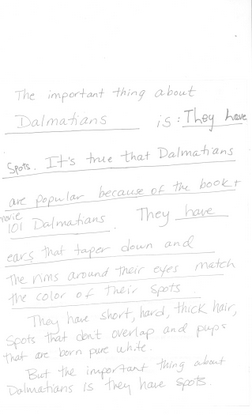 The important thing about
Dalmatians is: They have
spots. It's true that Dalmatians
are popular because of the book +
movie 101 Dalmatians. They have
ears that taper down and
the rims around their eyes match
the color of their spots.
They have short, hard, thick hair,
spots that don't overlap and pups
that are born pure white.
But the important thing about
Dalmatians is they have spots.